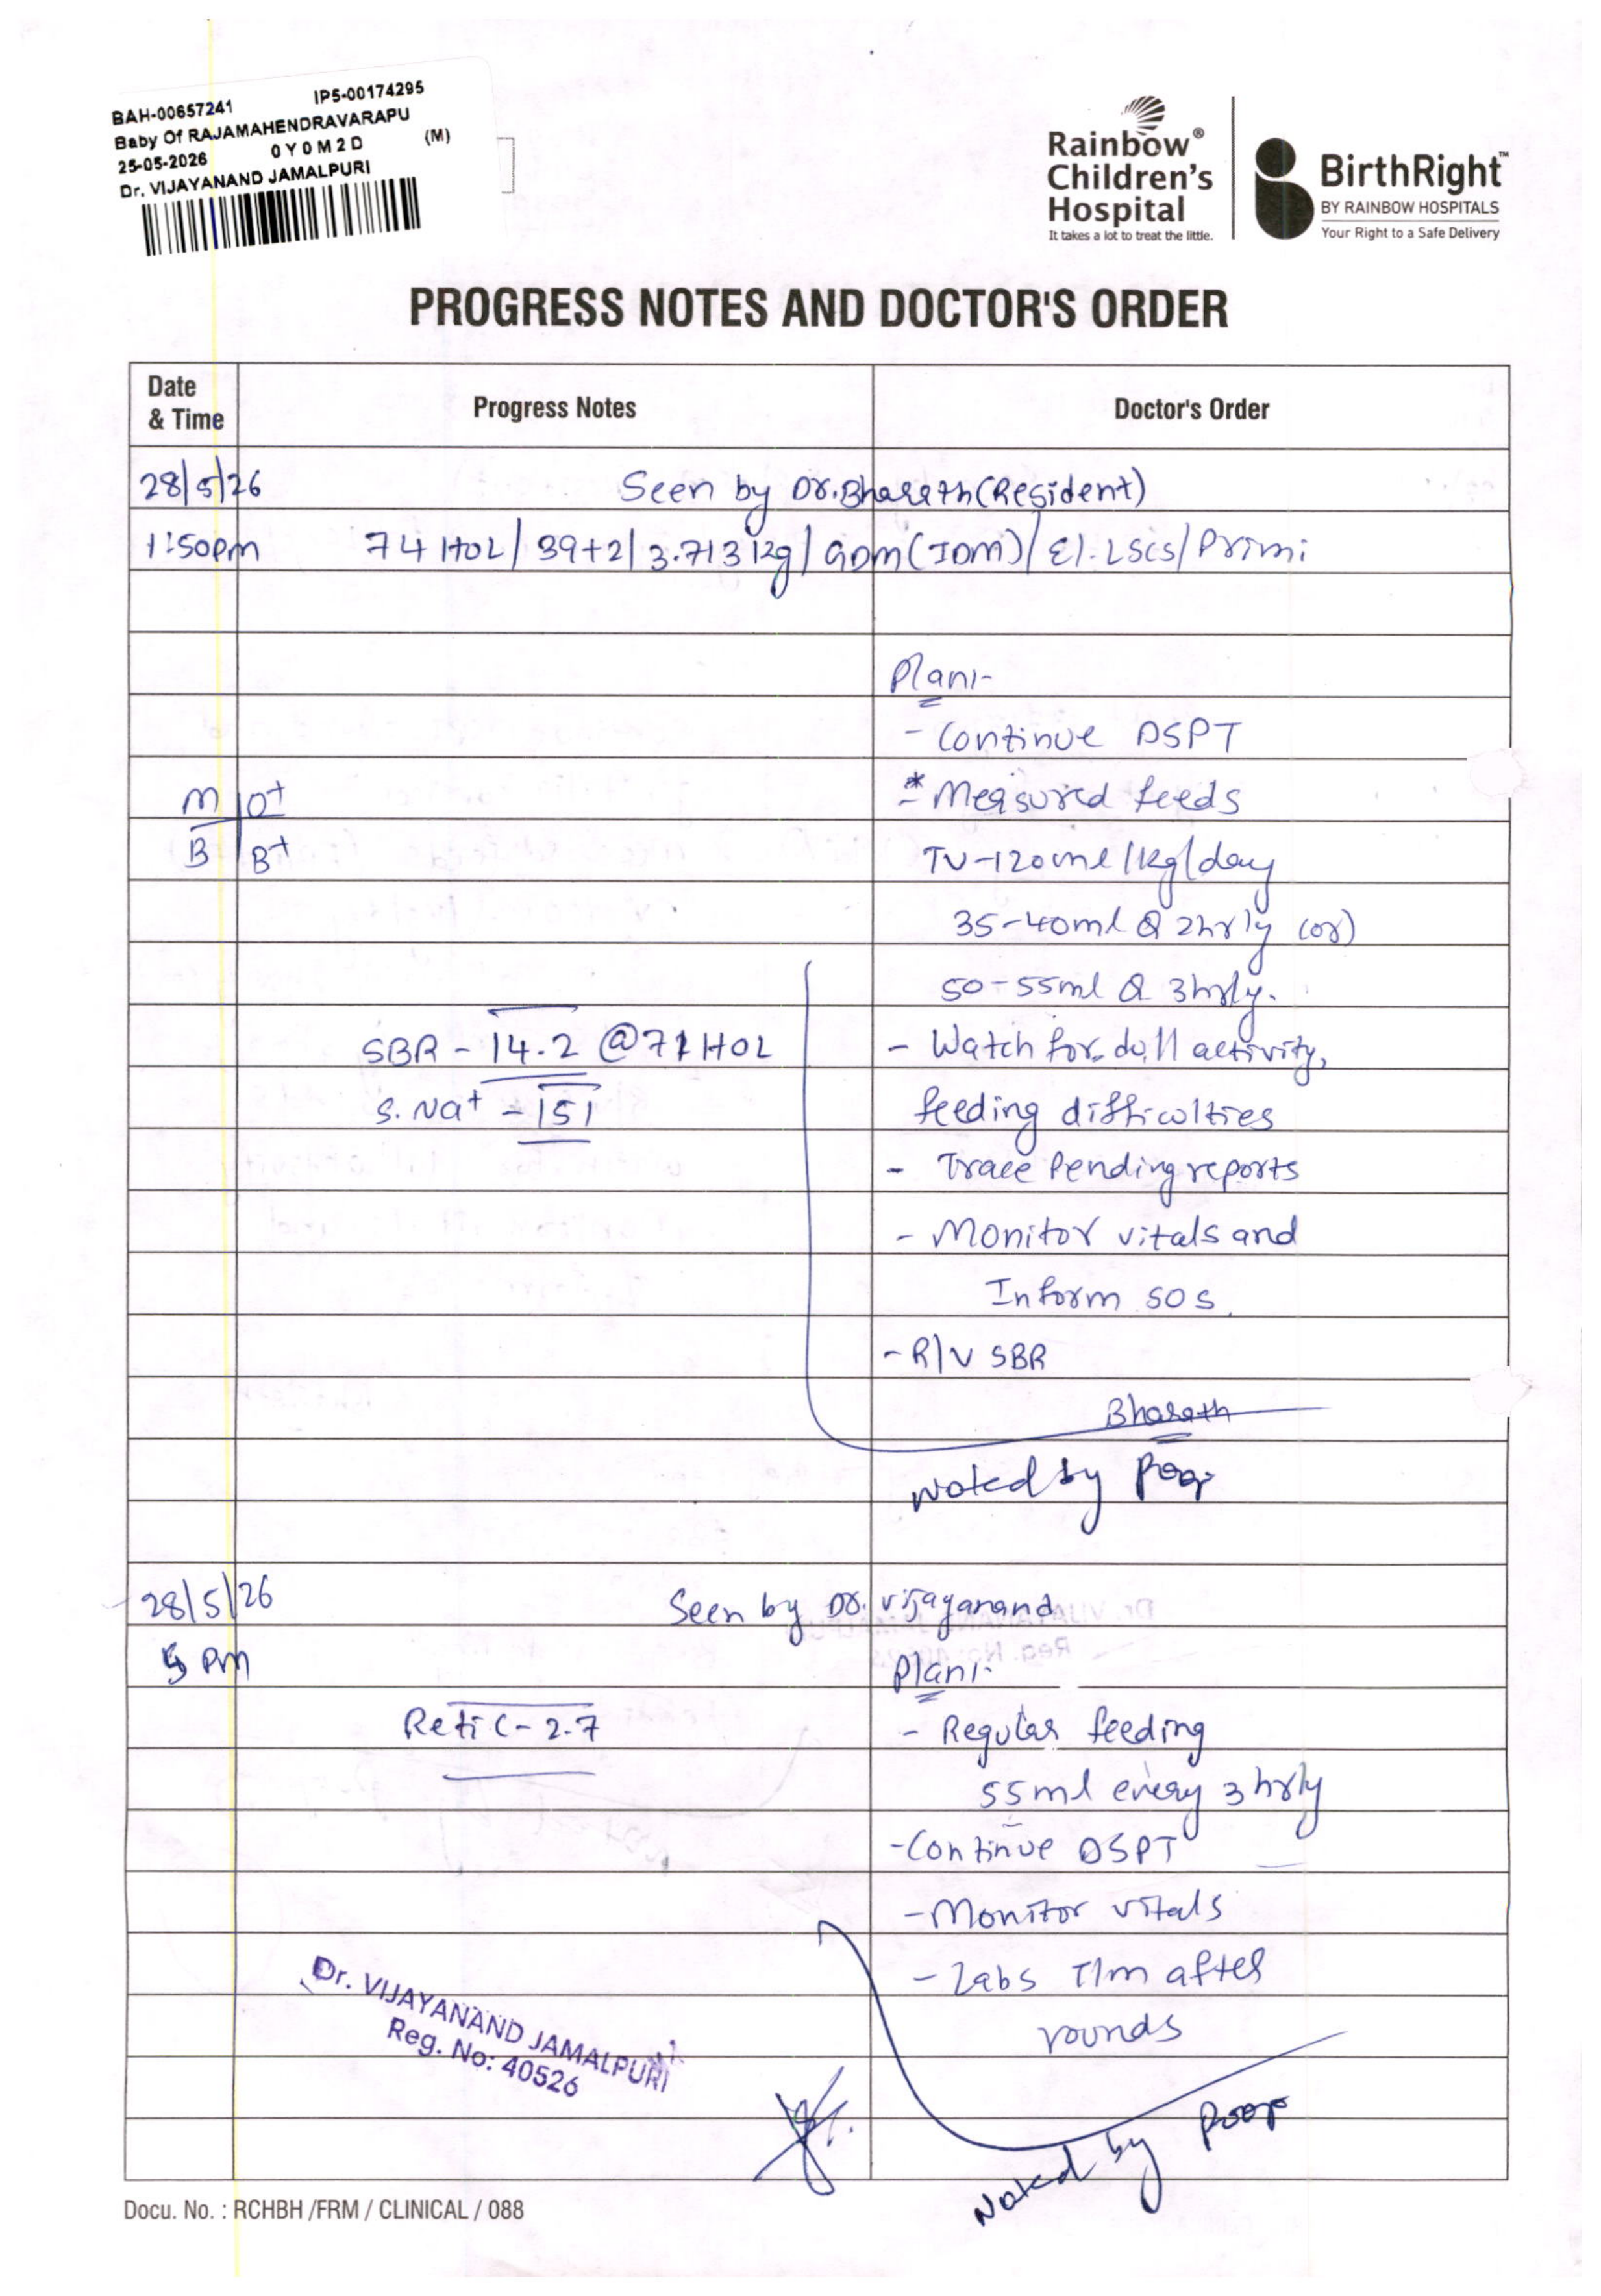 BAH-00657241 IP5-00174295
Baby Of RAJAMAHENDRAVARAPU
25-05-2026 0Y0M2D (M)
Dr. VIJAYANAND JAMALPURI
Rainbow®
Children's
Hospital
It takes a lot to treat the little.
BirthRight™
BY RAINBOW HOSPITALS
Your Right to a Safe Delivery
PROGRESS NOTES AND DOCTOR'S ORDER
Date & Time Progress Notes Doctor's Order
28/5/26 Seen by Dr. Bharath (Resident)
1:50pm 74 HOL / 39+2 / 3.713 kg / GDM (IDM) / El. LSCS / Primi
Plan:-
- Continue DSPT
M O+ * - Measured feeds
B B+ TV-120ml/kg/day
35-40ml Q 2hrly (or)
50-55ml Q 3hrly.
SBR - 14.2 @ 71 HOL - Watch for dull activity,
S. Na+ - 151 feeding difficulties
- Trace Pending reports
- Monitor vitals and
Inform SOS.
- R/V SBR
Bharath
Noted by
28/5/26 Seen by Dr. Vijayanand
5 pm Plan:-
Retic - 2.7 - Regular feeding
55ml every 3 hrly
- Continue DSPT
- Monitor vitals
- Labs T/m after
rounds
Dr. VIJAYANAND JAMALPURI
Reg. No: 40526
Noted by
Docu. No. : RCHBH /FRM / CLINICAL / 088